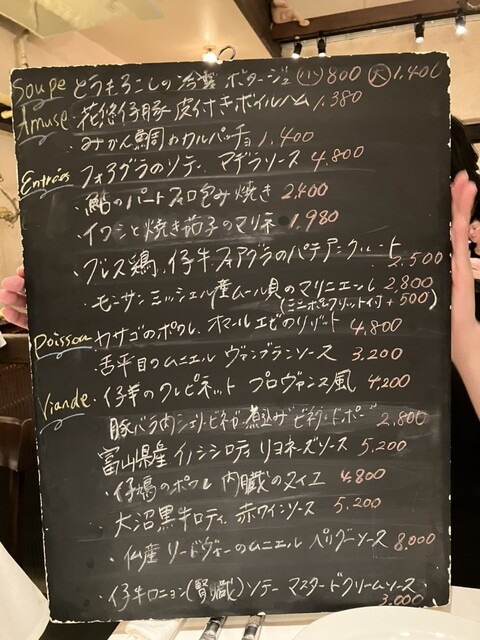 Soupe とうもろこしの冷製ポタージュ 小 800 大 1.400
Amuse 花悠仔豚 皮付きボイルハム 1.380
・みかん鯛のカルパッチョ 1.400
Entrées フォアグラのソテー マデラソース 4.800
・鮎のパートフィロ包み焼き 2.400
・イワシと焼き茄子のマリネ 1.980
・ブレス鶏、仔牛、フォアグラのパテアンクルート 2.500
・モンサンミッシェル産ムール貝のマリニエール 2.800
(ミニポムフリット付 + 500)
Poisson カサゴのポワレ オマールエビのリゾット 4.800
・舌平目のムニエル ヴァンブランソース 3.200
Viande ・仔羊のクレピネット プロヴァンス風 4.200
豚バラ肉シェリービネガー煮込み 2.800
富山県産イノシシロティ リヨネーズソース 5.200
・仔鳩のポワレ 内臓のソース 4.800
・大沼黒牛ロティ 赤ワインソース 5.200
・仏産 リードヴォーのムニエル ペリグーソース 8.000
・仔牛ロニョン(腎臓)ソテー マスタードクリームソース
3.000